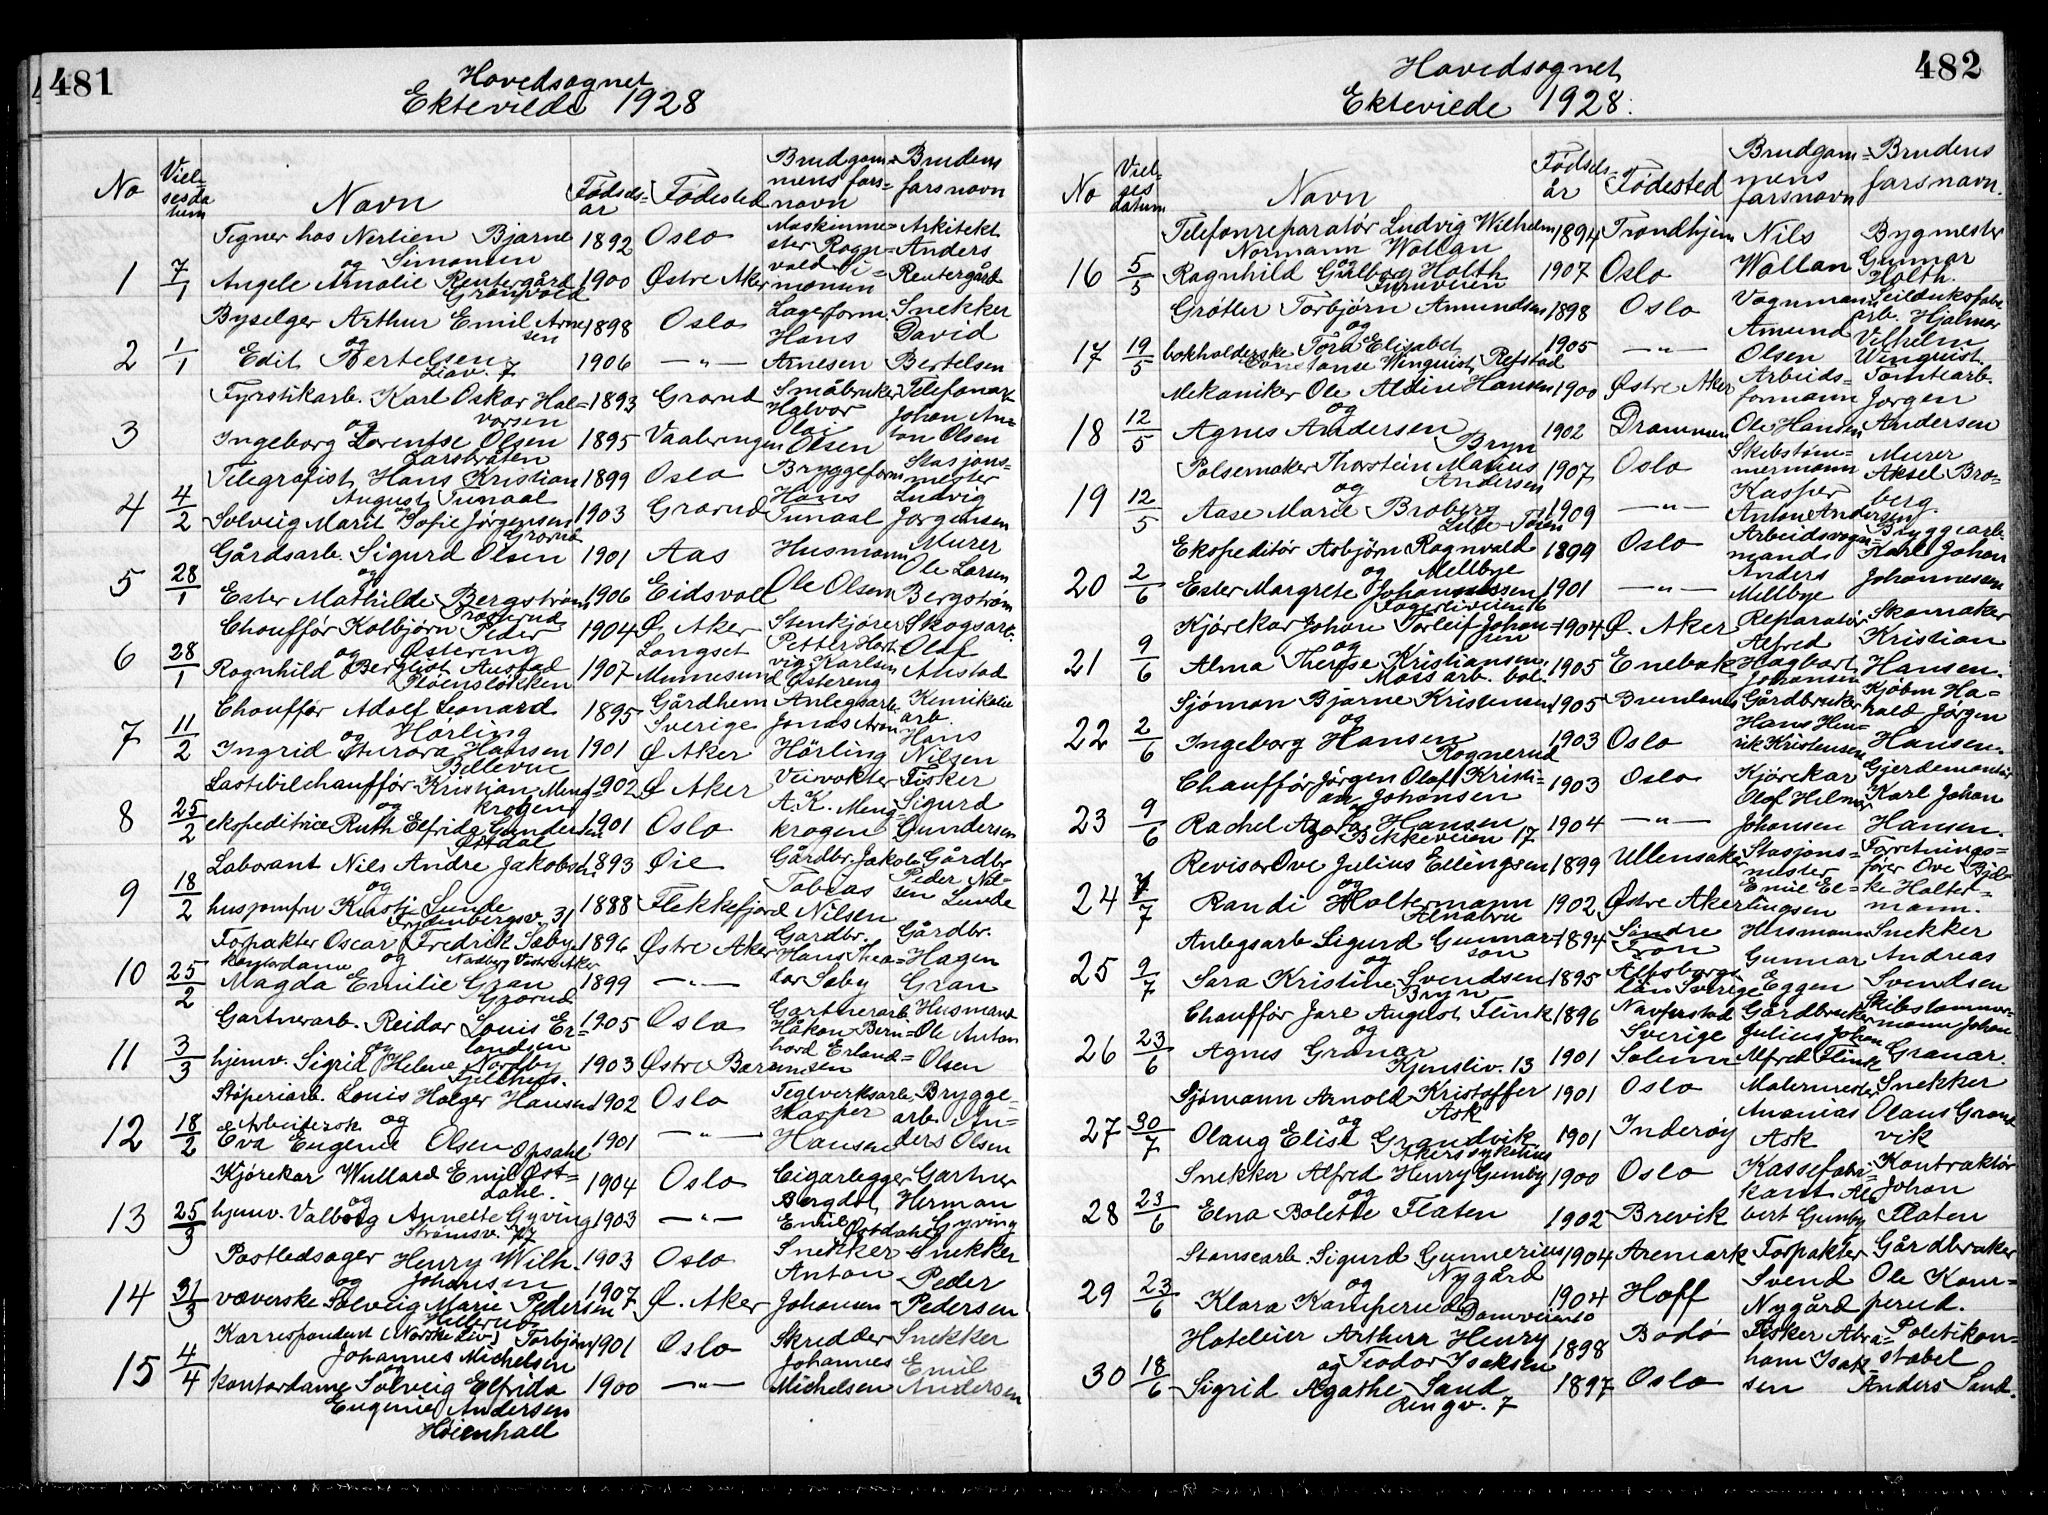 481
Hovedsognet
Ektevilde 1928
No Vielsesdatum Navn Fødselsår Fødested Brudgommens farsnavn Brudens farsnavn
Tegner hos Bjarne Simonsen 1892 Oslo Maskinmester Ragnvald Simonsen Arkitekt Anders Reutergård
1 7/1 og
Angele Amalie Reutergård 1900 Østre Aker
Grønvold
Byselger Arthur Emil Arnesen 1898 Oslo Lagerform. Hans Arnesen Snekker David Bertelsen
2 1/1 og
Edit Bertelsen 1906 —"—
Liav. 7
Fyrstikarb. Karl Oskar Halvorsen 1893 Grorud Småbruker Halvor Olai Olsen Johan Anton Olsen
3 og
Ingeborg Lorentse Olsen 1895 Vaaleringen
Larsbråten
Telegrafist Hans Kristian August Tunaal 1899 Oslo Bryggeform Hans Tunaal Stasjonsmester Ludvig Jørgensen
4 4/2 og
Solveig Marit Sofie Jørgensen 1903 Grorud
Grorud
Gårdsarb. Sigurd Olsen 1901 Aas Husmann Ole Olsen Murer Ole Larsen Bergstrøm
5 28/1 og
Ester Mathilde Bergstrøm 1906 Eidsvoll
Chouffør Kolbjørn Peder Østereng 1904 Ø. Aker Stenkjører Petter Hartvig Karlsen Østereng Skogsarb. Olaf Austad
6 28/1 og
Ragnhild Bergliot Austad 1907 Langset Minnesund
Pløensløkken
Chouffør Adolf Leonard Hørling 1895 Gårdhem Sverige Anlegsarb. Jonas Aron Hørling Kemikalie arb. Hans Nilsen
7 11/2 og
Ingrid Aurora Hansen 1901 Ø Aker
Bellevue
Lastebilchauffør Kristian Mengkrogen 1902 Ø Aker Veivokter A.K. Mengkrogen Fisker Sigurd Gundersen
8 25/2 og
ekspeditrice Ruth Elfrida Gundersen 1901 Oslo
Østdal
Laborant Nils Andre Jakobsen 1893 Øie Gårdbr. Jakob Tobias Nilsen Gårdbr Peder Nilsen Lunde
9 18/2 og
husjomfru Kirstj Lunde 1888 Flekkefjord
Trydenbergsv. 31
Forpakter Oscar Fredrik Saby 1896 Østre Aker Gardbr. Hans Theodor Saby Gårdbr. Hagen Gran
10 25/2 kontordame og Nordberg Vestre Aker
Magda Emilie Gran 1899 —"—
Grorud
Gartnerarb. Reidar Louis Erlandsen 1905 Oslo Gartnerarb Håkon Bernhard Erlandsen Husmand Ole Anton Olsen
11 3/3 og
hjemv. Sigrid Helene Nordby 1903 Østre Bar
Fjellhus.
Støperiarb. Louis Holger Hansen 1902 Oslo Teglverksarb Kasper Hansen Bryggearb. Anders Olsen
12 18/2 Arbeidersk og
Eva Eugenie Olsen 1901 —"—
Opsahl
Kjørekar Wullard Emil Østdahl. 1904 Oslo Cigarlegger Bergdol, Emil Østdahl Gartner Herman Gyving
13 25/3 og
hjemv. Valborg Annette Gyving 1903 —"—
Strømsv. 77
Postledsager Henry Wilh. Johansen 1903 Oslo Snekker Anton Johansen Snekker Peder Pedersen
14 31/3 og
væverske Solveig Marie Pedersen 1907 Ø. Aker
Hellerud
Korrespondent (Norske Liv) Torbjørn Johannes Michelsen 1901 Oslo Skredder Johannes Michelsen Snekker Emil Andersen
15 4/4 og
kontordame Solveig Elfrida Eugenie Andersen 1900 —"—
Høienhall
482
Hovedsognet
Ekteviede 1928.
No Vielsesdatum Navn Fødselsår Fødested Brudgommens farsnavn Brudens farsnavn.
Telefonreparatør Ludvig Wilhelm Normann Wollan 1894 Trondhjem Nils Wollan Bygmester Gunnar Holth.
16 5/5 og
Ragnhild Gulborg Holth 1907 Oslo
Grøtter Torbjørn Amundsen 1898 Oslo Vognmann Amund Olsen Seildugsfabr. arb. Hjalmar Vilhelm Winquist
17 19/5 og
bokholderske Tora Elisabet Constanse Winquist, Refstad 1905 —"—
Mekaniker Ole Aldin Hansen 1900 Østre Aker Arbeidsformann Ole Hansen Tomtearb. Jørgen Andersen
18 12/5 og
Agnes Andersen 1902 Drammen
Bryn
Pølsemaker Thorstein Marius Andersen 1907 Oslo Skibstømmermann Kasper Anton Andersen Murer Aksel Broberg.
19 12/5 og
Aase Marie Broberg 1909 —"—
Lille Tøien
Ekspeditør Asbjørn Ragnvald Mellbye 1899 Oslo Arbeidsvognmand Anders Mellbye Bryggearb. Karl Johan Johannesen
20 2/6 og
Ester Margrete Johannessen 1901 —"—
Fagerliveien 16
Kjørekar Johan Torleif Johansen 1904 Ø. Aker Reparatør Alfred Hagbart Johansen Skomaker Kristian Hansen.
21 9/6 og
Alma Therese Kristiansen. 1905 Enebak
Moss arb. bol.
Sjømann Bjarne Kristensen 1905 Brunlanes Gårdbruker Hans Henrik Kristensen Kjøbm Harald Jørgen Hansen.
22 2/6 og
Ingeborg Hansen 1903 Oslo
Rognerud
Chauffør Jørgen Olaf Kristian Johansen 1903 Oslo Kjørekar Olaf Hilmar Johansen Gjerdemontør Karl Johan Hansen.
23 9/6 og
Rachel Agora Hansen 1904 —"—
Bekkeveien 17
Revisor Ove Julius Ellingsen 1899 Ullensaker Stasjonsmester Emil Ellingsen Forretningsfører Ove Bjelke Haltermann.
24 7/7 og
Randi Holtermann 1902 Østre Aker
Alnabru
Anlegsarb Sigurd Gunnarson 1894 Søndre Husmann Gunnar Eggen Snekker Andreas Svendsen
25 9/7 og
Sara Kristine Svendsen 1895 Alfsborgs län Sverige
Bryn
Chauffør Jarl August Flink 1896 Navferstad Sverige Gårdbruker Julius Johan Alfred Flink Skibstømmermann Johan Granar.
26 23/6 og
Agnes Granar 1901 Solum
Kjernsliv. 13
Sjømann Arnold Kristoffer Ask 1901 Oslo Malermester Ananias Ask Snekker Olaus Grandvik
27 30/7 og
Olaug Elise Grandvik 1901 Inderøy
Akers sykehus
Snekker Alfred Henry Gumby 1900 Oslo Kassefabrikant Albert Gumby Kontraktør Johan Flaten
28 23/6 og
Elna Bolette Flaten 1902 Brevik
Stansearb. Sigurd Gunnerius Nygård 1904 Aremark Forpakter Svend Nygård Gårdbruker Ole Kamperud.
29 23/6 og
Klara Kamperud 1904 Hoff
Hotelleier Arthur Henry Teodor Isaksen 1898 Bodø Fisker Abraham Isaksen Politikonstabel Anders Sand.
30 18/6 og
Sigrid Agathe Sand 1897 Oslo
Ringv. 7